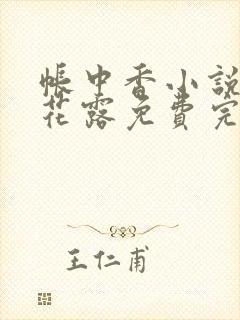 帳中香小說
花露免費完
王仁甫